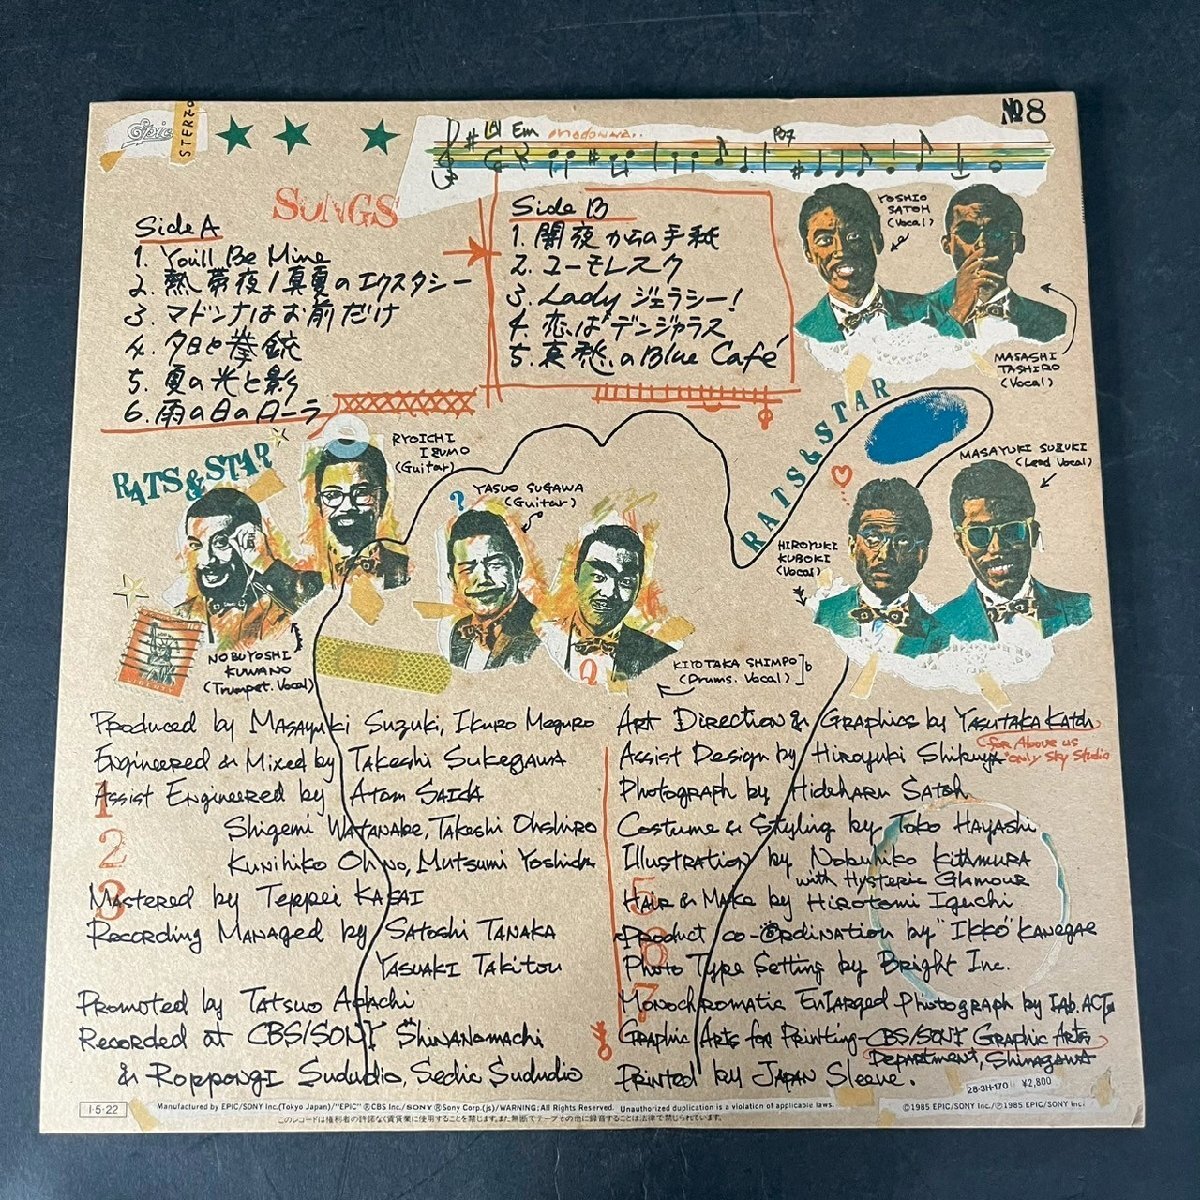 Epic
STEREO
Em
madonna..
№8
SONGS
Side A
1. You'll Be Mine
2.熱帯夜/真夏のエクスタシー
3. マドンナはお前だけ
4. 夕日と拳銃
5. 夏の光と影
6. 雨の日のローラ
Side B
1. 闇夜からの手紙
2. ユーモレスク
3. Lady ジェラシー!
4. 恋はデンジャラス
5. 哀愁のBlue Café
YOSHIO
SATOH
(Vocal)
MASASHI
TASHIRO
(Vocal)
RATS & STAR
RYOICHI
IZUMO
(Guitar)
YASUO SUGAWA
(Guitar)
RATS & STAR
MASAYUKI SUZUKI
(Lead Vocal)
HIROYUKI
KUBOKI
(Vocal)
NOBUYOSHI
KUWANO
(Trumpet. Vocal)
KIYOTAKA SHIMPO
(Drums. Vocal)
Produced by Masayuki Suzuki, Ikuro Meguro
Engineered & Mixed by Takeshi Sukegawa
Assist Engineered by Atom SAIDA
Shigemi Watanabe, Takeshi Ohshiro
Kunihiko Ohno, Mutsumi Yoshida
Mastered by Teppei KASAI
Recording Managed by Satoshi TANAKA
YASUAKI Takitou
Promoted by Tatsuo Adachi
Recorded at CBS/SONY Shinanomachi
& Roppongi Sududio, Sedic Sududio
1
2
3
Art Direction & Graphics by Yasutaka Katoh
(for Above us
only Sky Studio
Assist Design by Hiroyuki Shikuya
Photograph by Hideharu Satoh
Costume & Styling by Toko Hayashi
Illustration by Nobuhiko Kitamura
with Hysteric Glamour
Hair & Make by Hirotomi Iguchi
Product co-ordination by "IKKO" Kanegae
Photo Type Setting by Bright Inc.
Monochromatic Enlarged Photograph by Lab. ACT
Graphic Arts for Printing-CBS/SONY Graphic Arts
Department, Shinagawa
Printed by Japan Sleeve.
5
6
7
28·3H-170 ¥2,800
1·5·22
Manufactured by EPIC/SONY Inc.(Tokyo Japan)/"EPIC" ®CBS Inc./SONY ®Sony Corp.(js)/WARNING: All Rights Reserved. Unauthorized duplication is a violation of applicable laws.
©1985 EPIC/SONY Inc./℗1985 EPIC/SONY Inc.
このレコードは権利者の許諾なく賃貸業に使用することを禁じます。また無断でテープその他に録音することは法律で禁じられています。